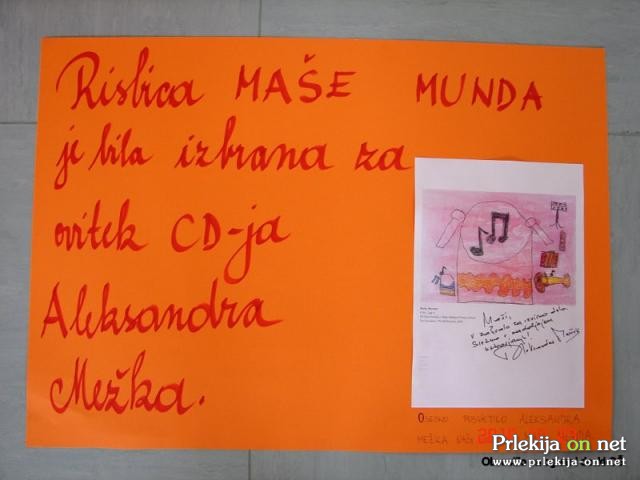 Risbica MAŠE MUNDA
je bila izbrana za
ovitek CD-ja
Aleksandra
Mežka.
Maši,
v zahvalo za
OSEBNO POSVETILO ALEKSANDRA
MEŽKA
Prlekija on net
www.prlekija-on.net